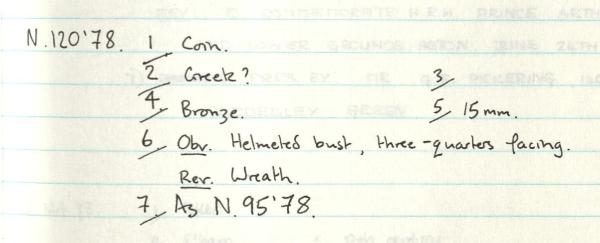 N.120'78. 1/ Coin.
2/ Greek? 3/
4/ Bronze. 5/ 15mm.
6/ Obv. Helmeted bust, three-quarters facing.
Rev. Wreath.
7/ As N.95'78.